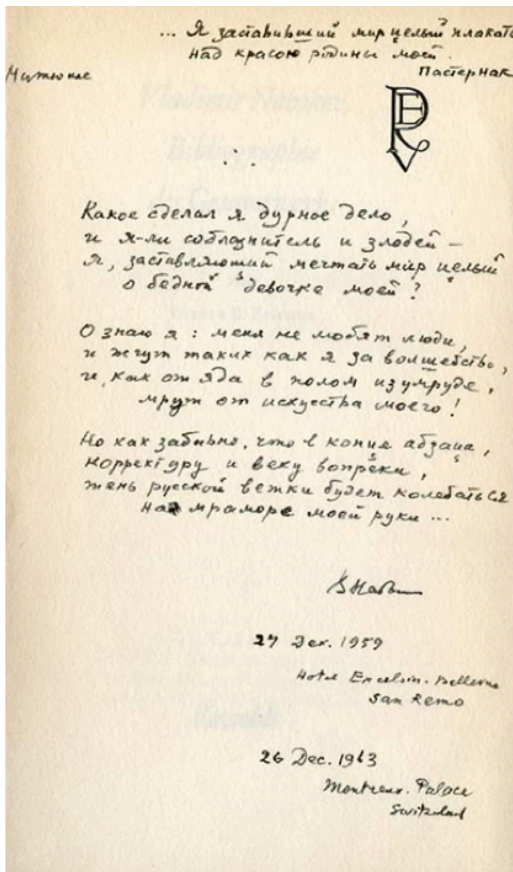 ... Я заставивший мир целый плакать
над красою родины моей.
Пастернак
Какое сделал я дурное дело,
и я-ли соблазнитель и злодей –
я, заставляющий мечтать мир целый
о бедной девочке моей?
О знаю я: меня не любят люди,
и жгут таких как я за волшебство,
и, как от яда в полом изумруде,
мрут от искусства моего!
Но как забавно, что в конце абзаца,
корректору и веку вопреки,
тень русской ветки будет колебаться
на мраморе моей руки ...
27 Dec. 1959
Hotel
San Remo
26 Dec. 1963
Montreux-Palace
Switzerland